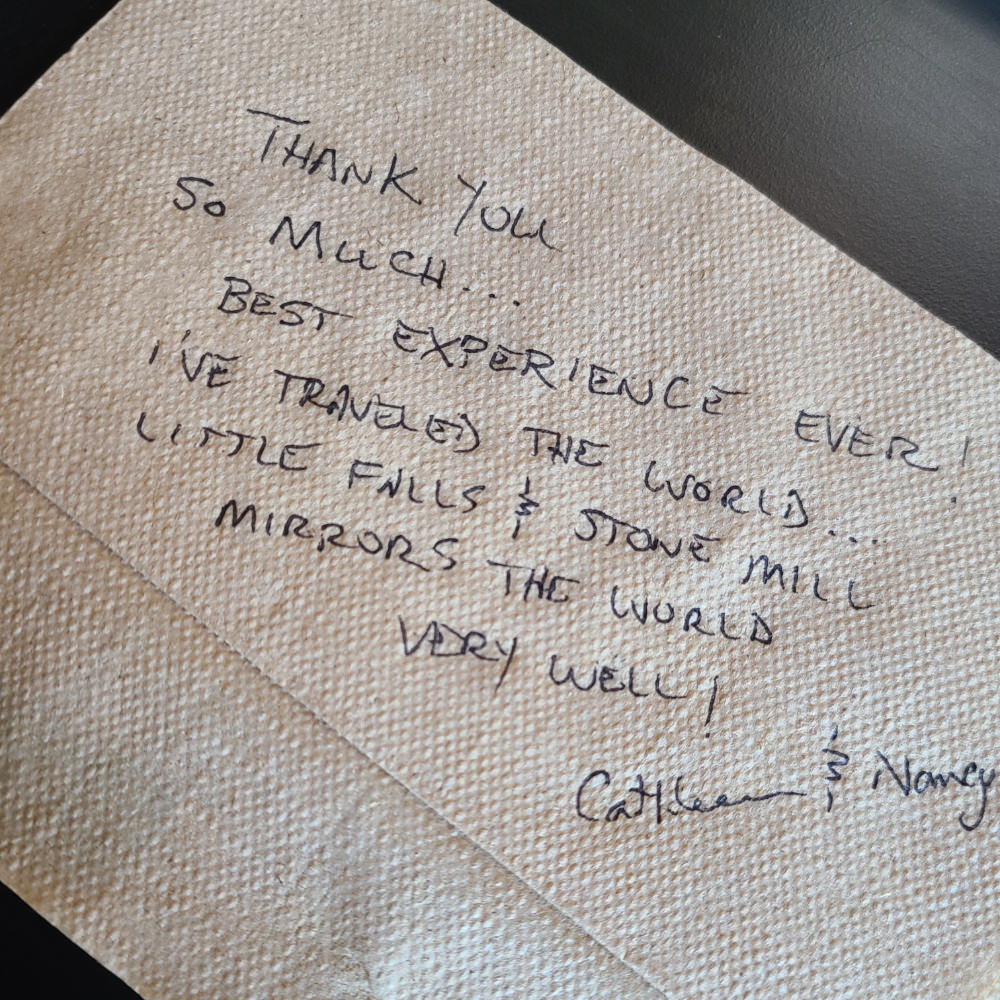 THANK YOU
SO MUCH...
BEST EXPERIENCE EVER!
I'VE TRAVELED THE WORLD...
LITTLE FALLS & STONE MILL
MIRRORS THE WORLD
VERY WELL!
Cathleen & Nancy